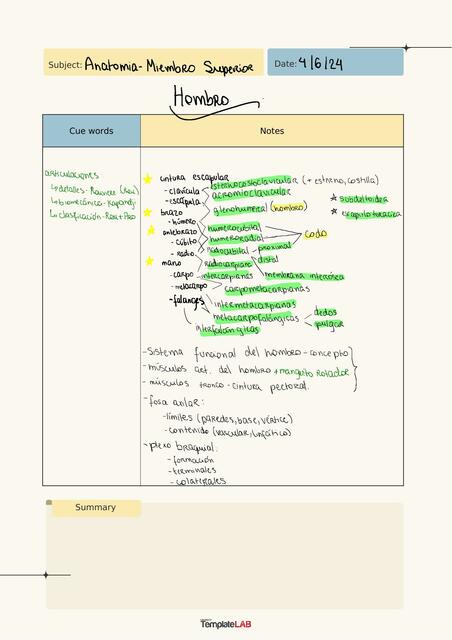 Subject: Anatomia - Miembro Superior
Date: 4/6/24
Hombro
Cue words
Notes
articulaciones
↳ detalles - Rouviere (Roú)
↳ biomecánica - Kapandji
↳ clasificación - Rou + Pro
cintura escapular
- clavícula
- escápula
brazo
- húmero
antebrazo
- cúbito
- radio
mano
- carpo
- metacarpo
- falanges
esternocostoclavicular (+ esterno, costilla)
acromioclavicular
glenohumeral (hombro)
subdeltoidea
escapulotoracica
humerocubital
humeroradial
codo
radiocubital
proximal
distal
membrana interósea
radiocarpiana
intercarpianas
carpometacarpianas
intermetacarpianas
metacarpofalángicas
dedos
pulgar
interfalángicas
- Sistema funcional del hombro - concepto
- músculos act. del hombro + manguito rotador
- músculos tronco - cintura pectoral.
- fosa axilar:
- límites (paredes, base, vértice)
- contenido (vascular, linfático)
- plexo braquial:
- formación
- terminales
- colaterales
Summary
TemplateLAB